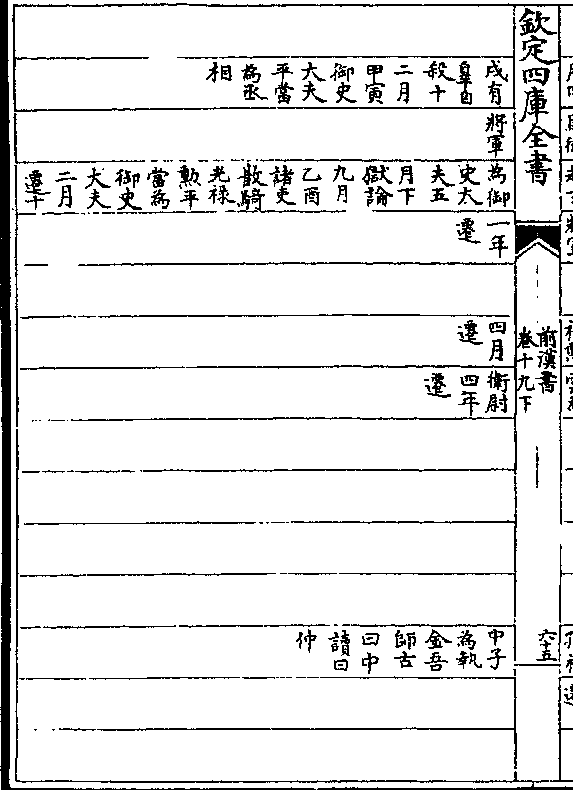 欽定四庫全書
前漢書
卷十九下
戌有
辠自
殺十
二月
甲寅
御史
大夫
平當
為丞
相
將軍
為御
史大
夫五
月下
獄論
九月
乙酉
諸吏
散騎
光祿
勲平
當為
御史
大夫
二月
遷十
一年
遷
四月
遷
衛尉
四年
遷
中子
為執
金吾
師古
曰中
讀曰
仲